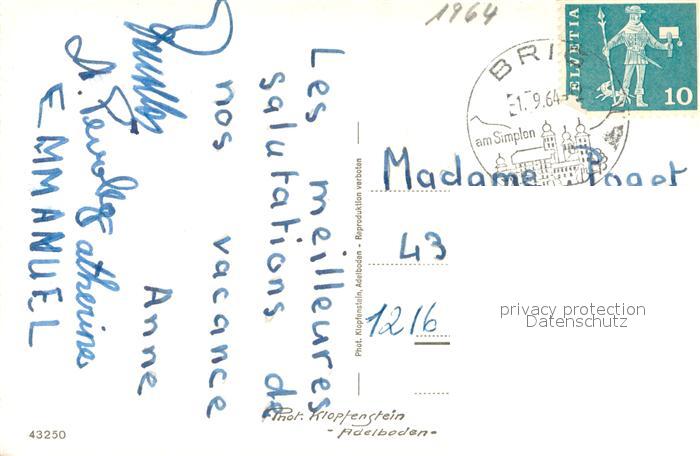 1964
HELVETIA
10
BRI
1.9.64
am Simplon
Les meilleures
salutations de
nos vacance
Anne
Catherine
EMMANUEL
Madame Poget
43
1216
privacy protection
Datenschutz
Phot. Klopfenstein, Adelboden - Reproduktion verboten
Phot. Klopfenstein
- Adelboden -
43250